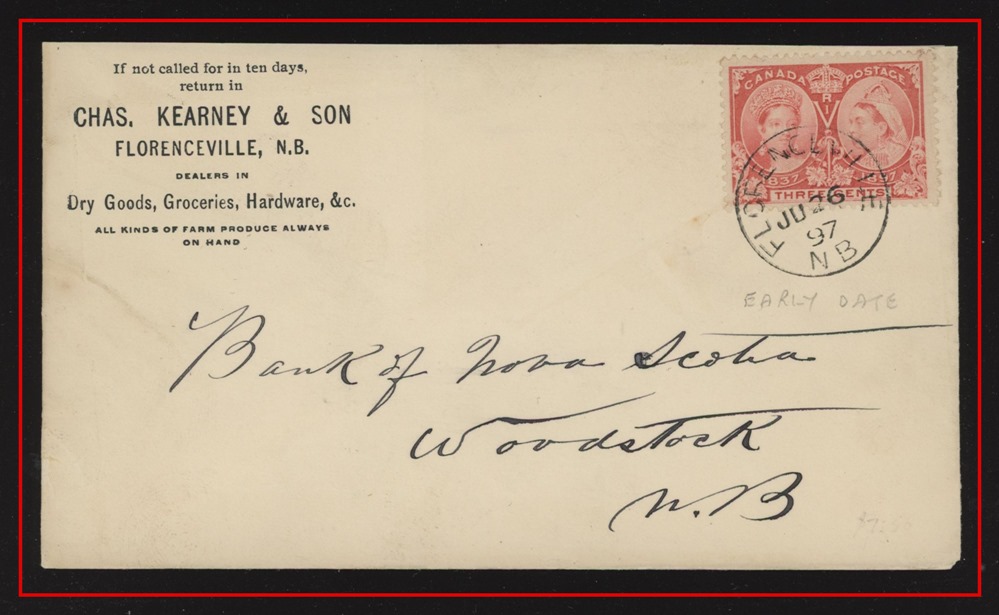 If not called for in ten days,
return in
CHAS. KEARNEY & SON
FLORENCEVILLE, N.B.
DEALERS IN
Dry Goods, Groceries, Hardware, &c.
ALL KINDS OF FARM PRODUCE ALWAYS
ON HAND
CANADA POSTAGE
V R I
1837 1897
THREE CENTS
FLORENCEVILLE
JU 26
97
N B
EARLY DATE
Bank of Nova Scotia
Woodstock
N.B